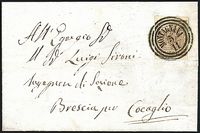 All'Egregio Sr
Il Sr Luigi Sironi
Ingegnere di Sezione
Brescia per Coccaglio